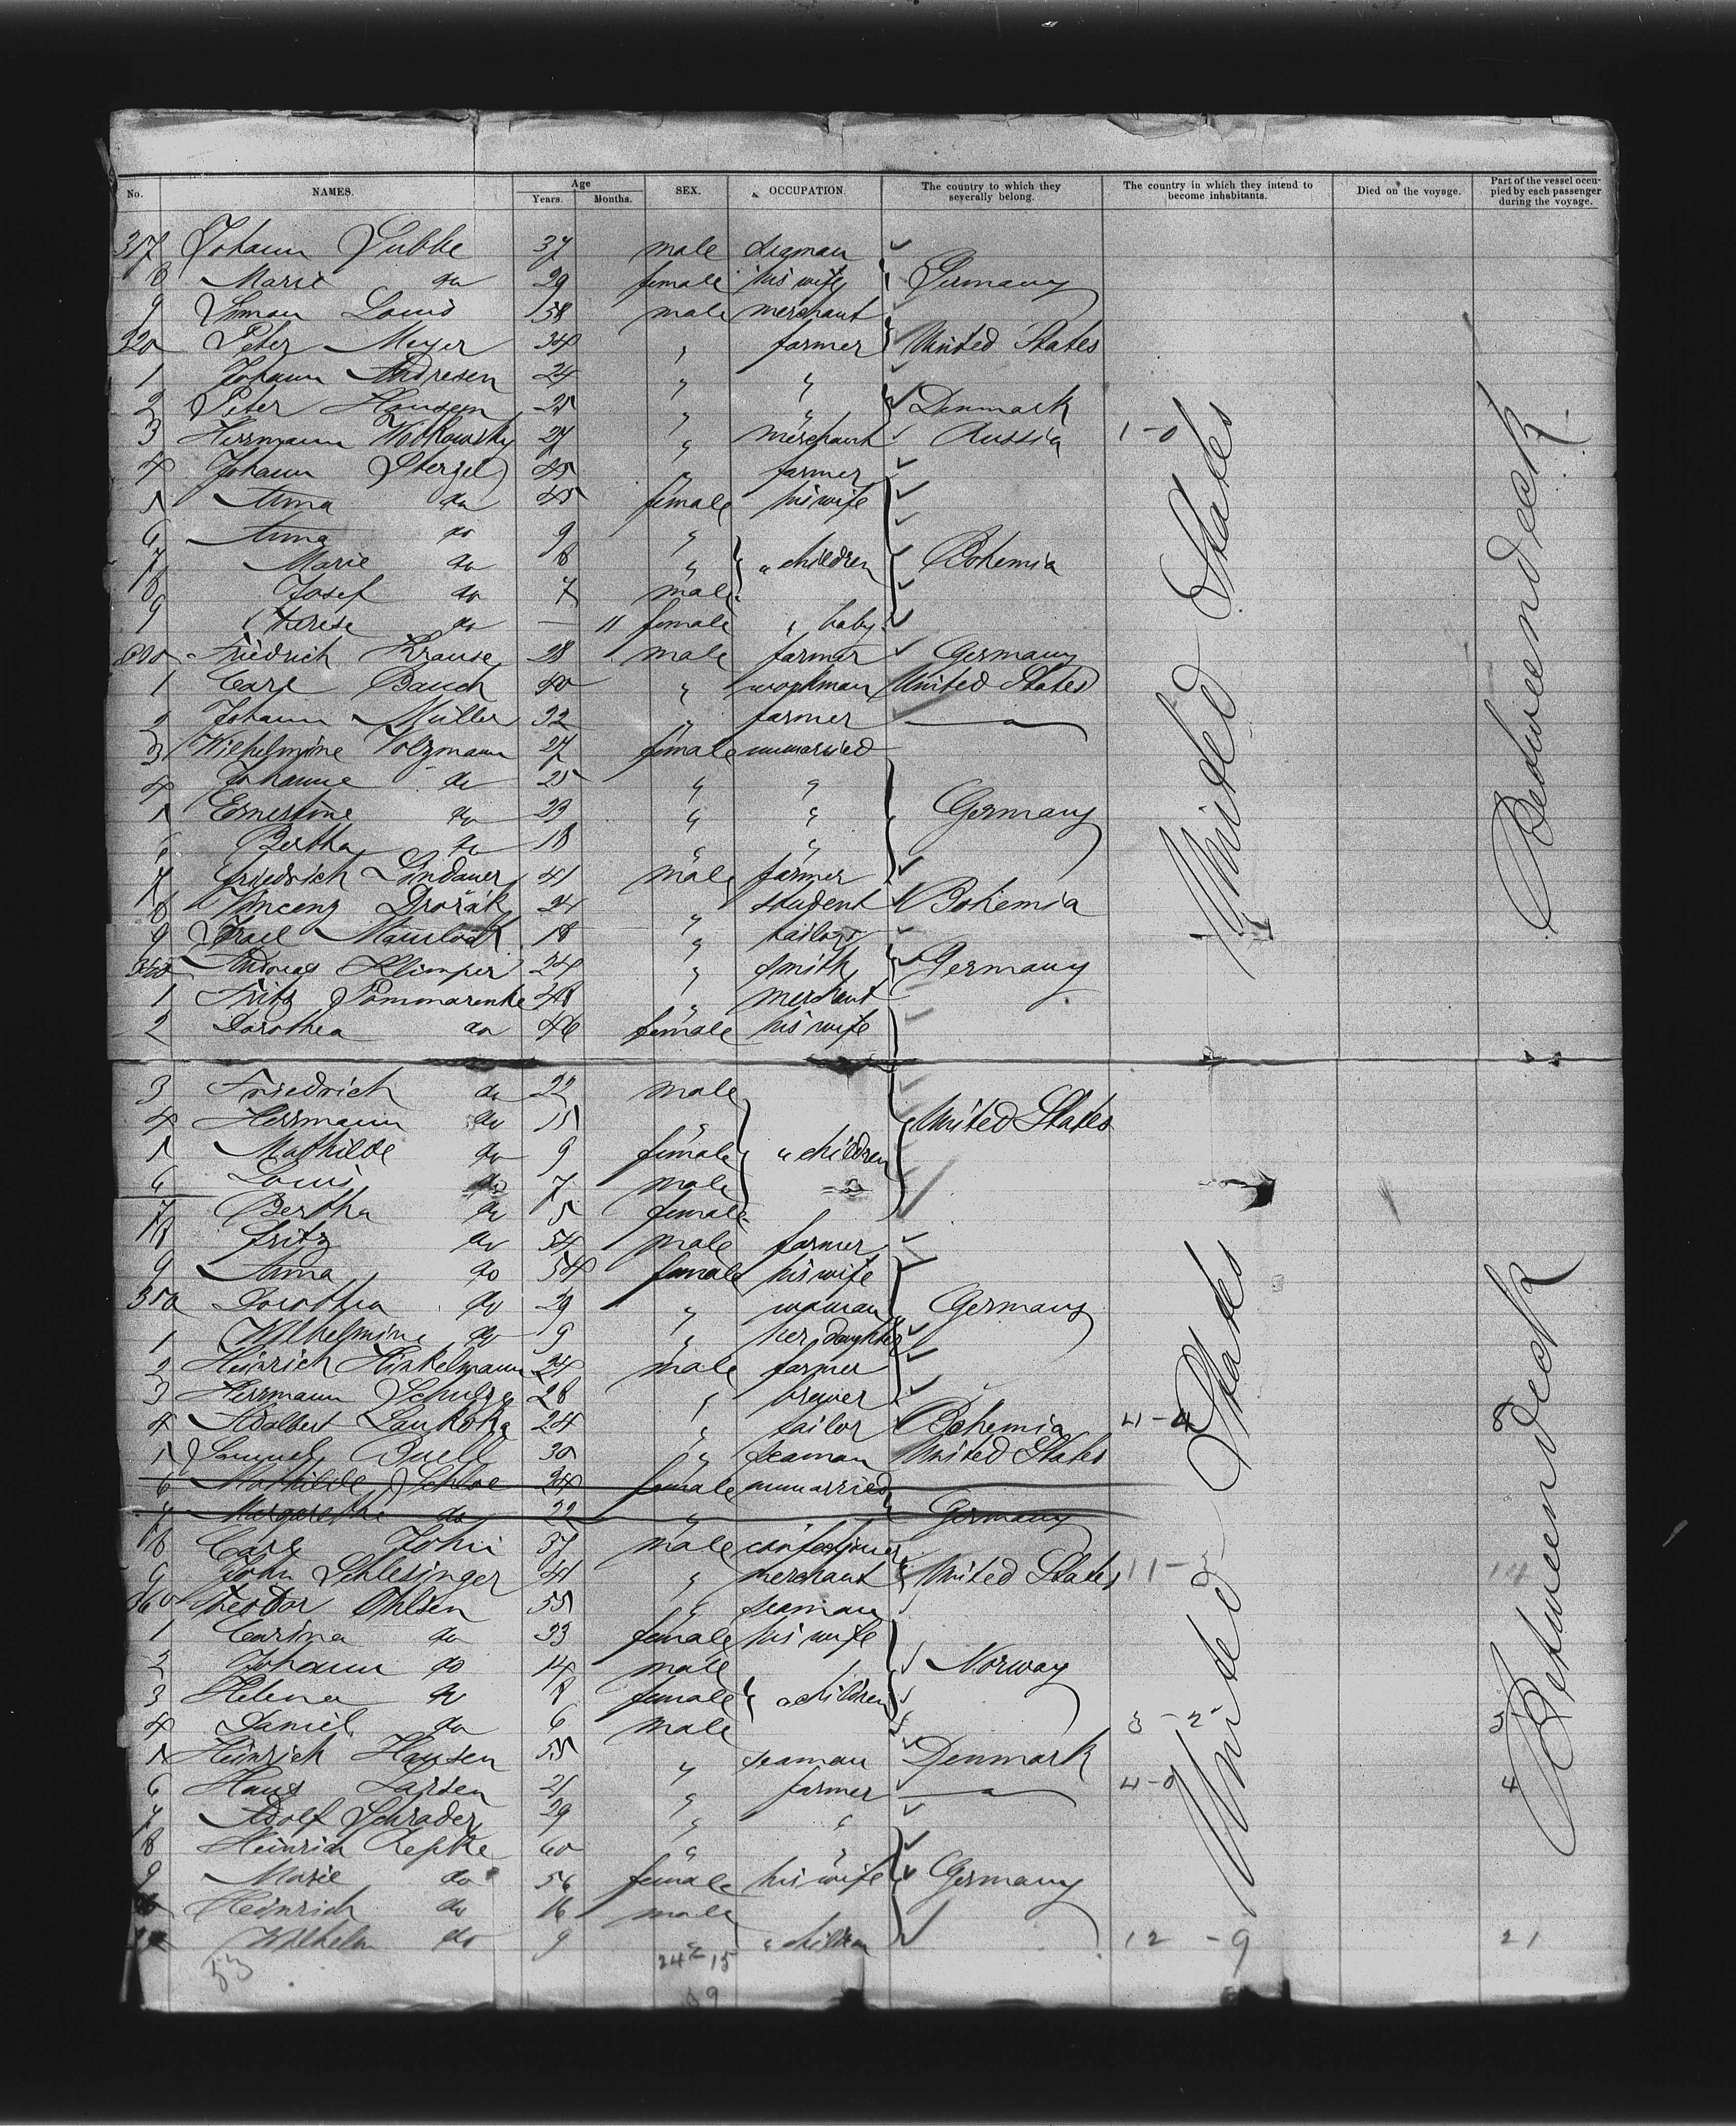 No. NAMES. Age Years. Months. SEX. OCCUPATION. The country to which they severally belong. The country in which they intend to become inhabitants. Died on the voyage. Part of the vessel occupied by each passenger during the voyage.
317 Johann Lubbe 37 male
8 Marie do 29 female his wife Germany
9 Simon Louis 58 male merchant
320 Peter Meyer 34 " farmer United States
1 Johann Andresen 24 " "
2 Peter Hansen 25 " " Denmark
3 Herrmann 27 " merchant Russia 1-0
4 Johann 45 " farmer
5 Anna do 45 female his wife
6 Anna do 9 "
7 Marie do 8 " " children Bohemia
8 Josef do 7 male
9 Therese do — 11 female " baby
Friedrich Krause 28 male farmer Germany
1 Carl Bauch 40 " workman United States
2 Johann Müller 32 " farmer —"—
3 Wilhelmine Volzmann 27 female unmarried
4 Johanne do 25 " "
5 Ernestine do 23 " " Germany
6 Bertha do 18 " "
7 Friedrich Lindauer 41 male farmer
8 Vincenz Dvořák 24 " student Bohemia
9 18 " tailor
340 Andreas Klimper 24 " smith Germany
1 Fritz Pommarenke 48 " merchant
2 Dorothea do 46 female his wife
3 Friedrich do 22 male
4 Herrmann do 15 " United States
5 Mathilde do 9 female " children
6 Louis do 7 male
7 Bertha do 5 female
8 Fritz do 54 male farmer
9 Anna do 54 female his wife
350 Dorothea do 29 " woman Germany
1 Wilhelmine do 9 " her daughter
2 Heinrich Hinkelmann 24 male farmer
3 Herrmann Schulze 28 " brewer
4 Adalbert 24 " tailor Bohemia 4-4 8
5 Samuel Buell 30 " seaman United States
6 Mathilde 24 female unmarried
7 Margarethe do 22 " Germany
8 Carl John 37 male confectioner
9 John Schlesinger 41 " merchant United States 11-3 14
360 Theodor Ohlsen 55 " seaman
1 Carina do 33 female his wife
2 Johann do 14 male Norway
3 Helena do 8 female " children
4 Daniel do 6 male 3-2 5
5 Heinrich Hansen 55 " seaman Denmark
6 Hans Larsen 25 " farmer —"— 4-0 4
7 Adolf Schrader 29 " "
8 Heinrich Repke 60 " "
9 Marie do 56 female his wife Germany
Heinrich do 16 male
Wilhelm do 9 " " children 12-9 21
53 24 15
39
United States
United States
Betweendeck
Betweendeck